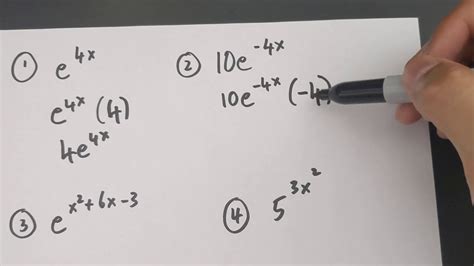 ① e^{4x}
e^{4x} (4)
4e^{4x}
② 10e^{-4x}
10e^{-4x} (-4)
③ e^{x^2+6x-3}
④ 5^{3x^2}